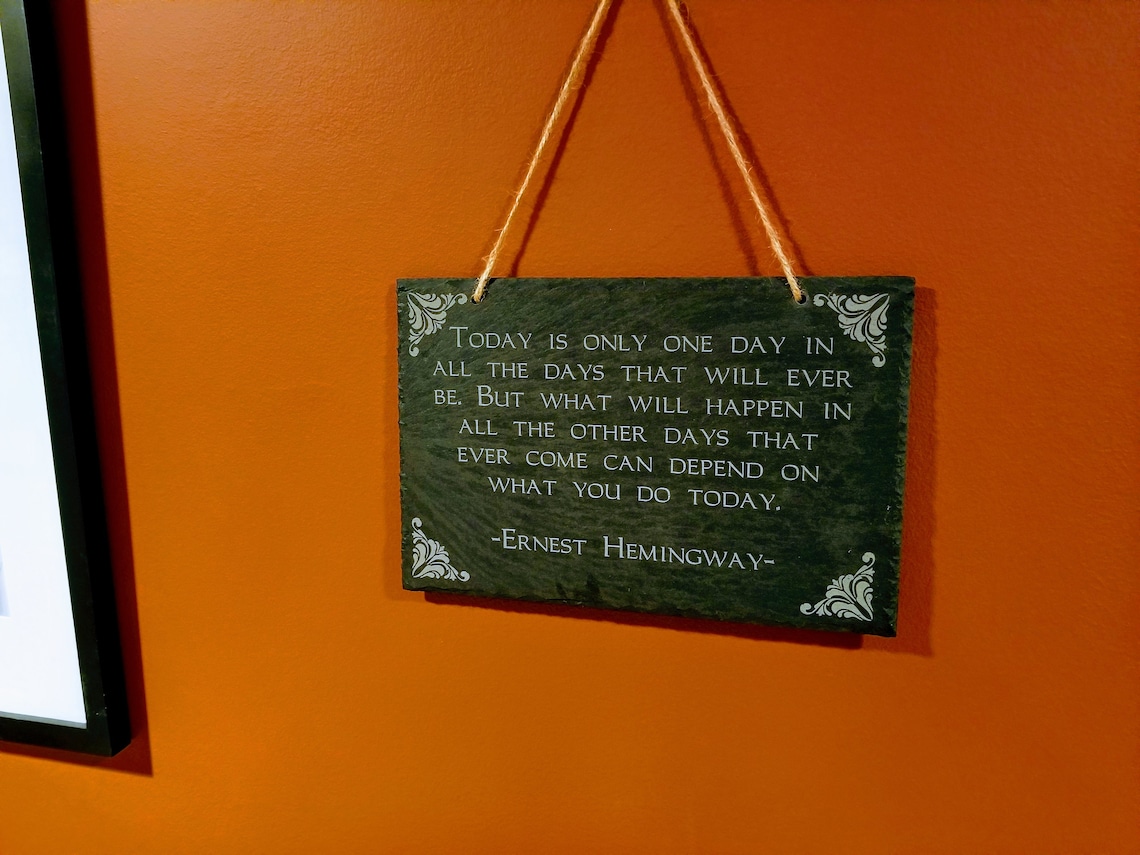 Today is only one day in
all the days that will ever
be. But what will happen in
all the other days that
ever come can depend on
what you do today.
-Ernest Hemingway-